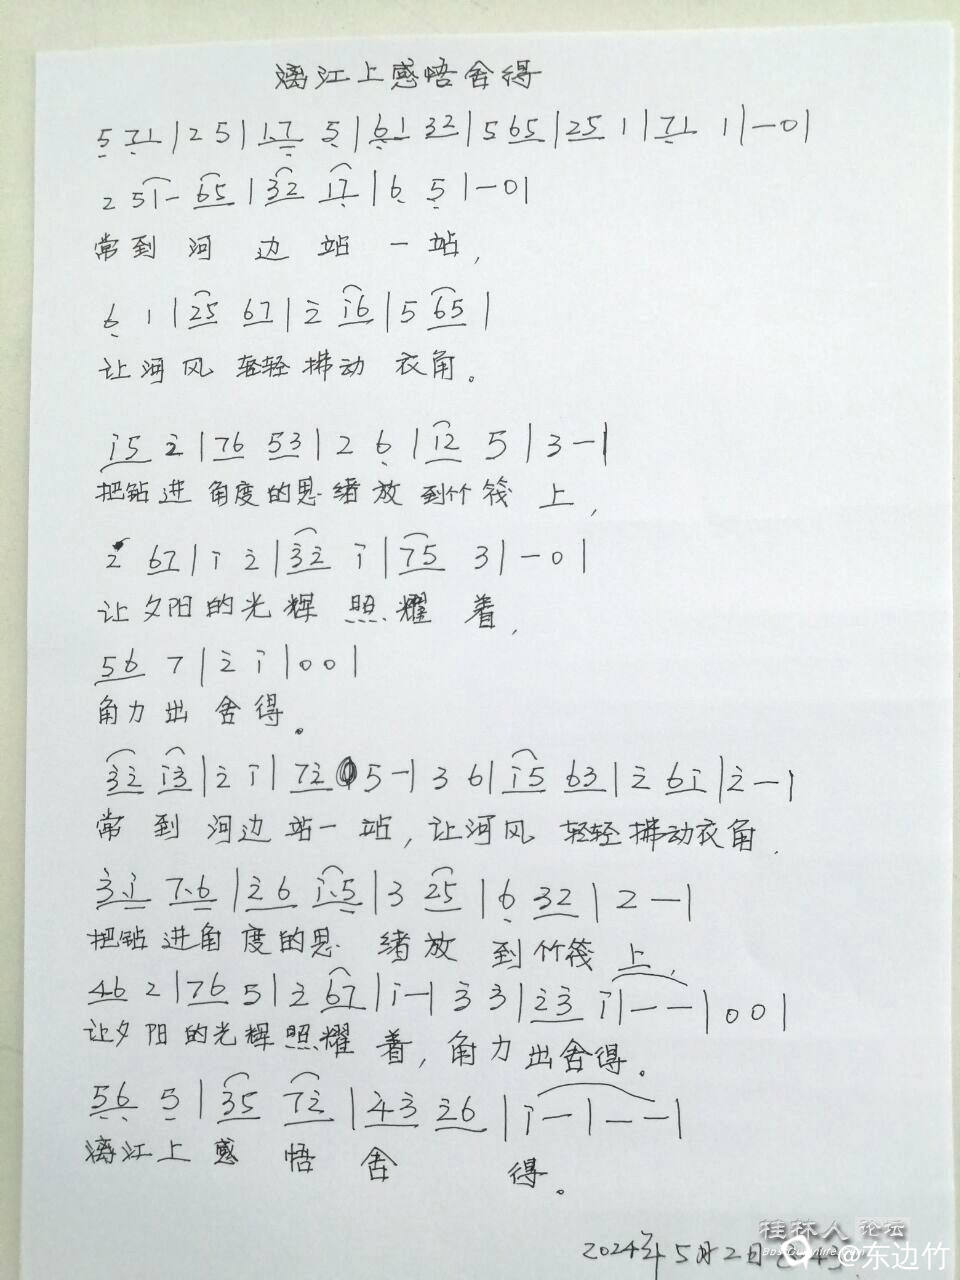 漓江上感悟舍得
5 71 | 2 5 | 1.7 5 | 61 32 | 5 65 | 25 1 | 71 1 | — 0 |
2 51 - 65 | 32 17 | 6 5 | — 0 |
常到河边站一站,
6 1 | 25 67 | 2 16 | 5 65 |
让河风轻轻拂动衣角。
15 2 | 76 53 | 2 6 | 12 5 | 3 — |
把钻进角度的思绪放到竹筏上,
2 67 | 1 2 | 32 1 | 75 3 | — 0 |
让夕阳的光辉照耀着,
56 7 | 2 1 | 0 0 |
角力出舍得。
32 13 | 2 1 | 72 5 — | 3 6 | 15 63 | 2 61 | 2 — |
常到河边站一站,让河风轻轻拂动衣角.
3.1 7.6 | 26 1.5 | 3 25 | 6 32 | 2 — |
把钻进角度的思绪放到竹筏上,
46 2 | 76 5 | 2 67 | 1 — | 3 3 | 23 1 | — — | 0 0 |
让夕阳的光辉照耀着,角力出舍得。
56 5 | 35 72 | 43 26 | 1 — | — — |
漓江上感悟舍得。
2024年5月2日
桂林人论坛
@东边竹